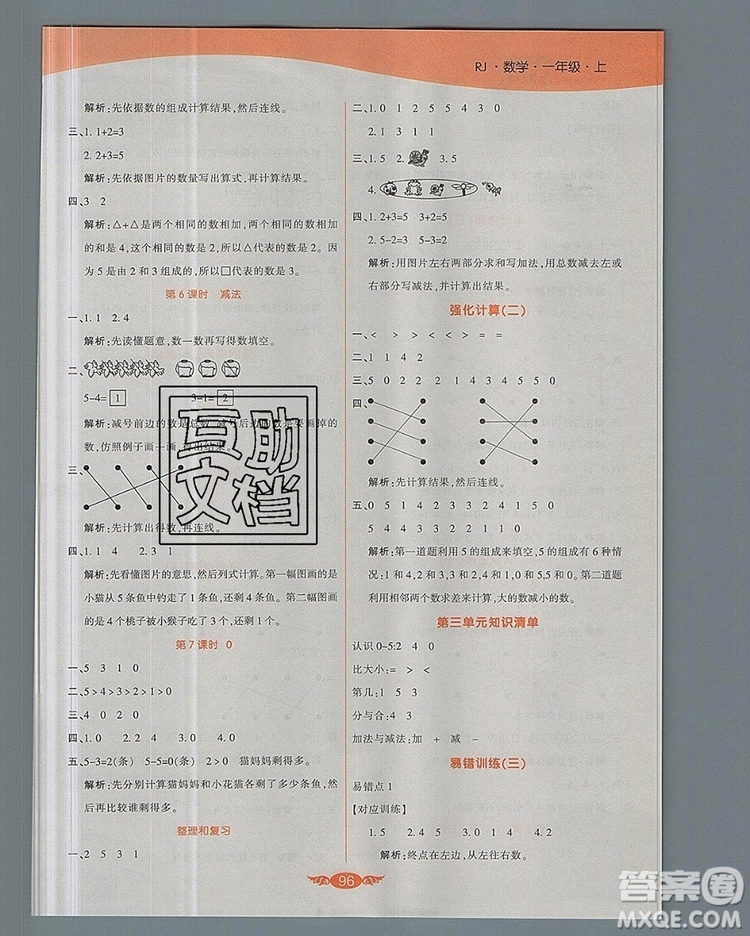 RJ·数学·一年级·上
解析:先依据数的组成计算结果,然后连线。
三、1. 1+2=3
2. 2+3=5
解析:先依据图片的数量写出算式,再计算结果。
四、3 2
解析:△+△是两个相同的数相加,两个相同的数
的和是4,这个相同的数是2,所以△代表的数是2。因
为5是由2和3组成的,所以□代表的数是3。
第6课时 减法
一、1. 1 2. 4
解析:先读懂题意,数一数再写得数填空。
二、
5-4=1 3-1=2
解析:减号前边的数是总数,减号后边的数是要画掉的
数,仿照例子画一画,得出结果。
三、
解析:先计算出得数,再连线。
四、1. 1 4 2. 3 1
解析:先看懂图片的意思,然后列式计算。第一幅图画的是
小猫从5条鱼中钓走了1条鱼,还剩4条鱼。第二幅图画
的是4个桃子被小猴子吃了3个,还剩1个。
第7课时 0
一、5 3 1 0
二、5>4>3>2>1>0
三、4 0 2 0
四、1. 0 2. 5 5 3. 0 4. 0
五、5-3=2(条) 5-5=0(条) 2>0 猫妈妈剩得多。
解析:先分别计算猫妈妈和小花猫各剩了多少条鱼,然
后再比较谁剩得多。
整理和复习
一、2 5 3 1
二、1. 0 1 2 5 5 4 3 0
2. 1 3 1 1
三、1. 5 2. 3. 5
4.
四、1. 2+3=5 3+2=5
2. 5-2=3 5-3=2
解析:用图片左右两部分求和写加法,用总数减去左或
右部分写减法,并计算出结果。
强化计算(二)
一、< > > < > = =
二、1 1 4 4 2 2 3
三、5 0 2 4 0 1 3 5 0 3 1
四、
解析:先计算结果,然后连线。
五、0 5 1 4 2 3 3 2 4 1 5 0
1 4 2 3 3 2 4 1 5 0
解析:第一道题利用5的组成来填空,5的组成有6种情
况:1和4,2和3,0和5,4和1,3和2,5和0。第二道题
利用相邻两个数求差来计算,大的数减小的数。
第三单元知识清单
认识0~5:2 4 0
比大小:= > <
第几:1 5 3
分与合:4 3
加法与减法:加 + 减 -
易错训练(三)
易错点1
【对应训练】
1. 5 2. 4 4 3. 0 4 0 1 4. 2
解析:终点在左边,从左往右数。
96
豆助
文档
答案圈
MXQE.COM